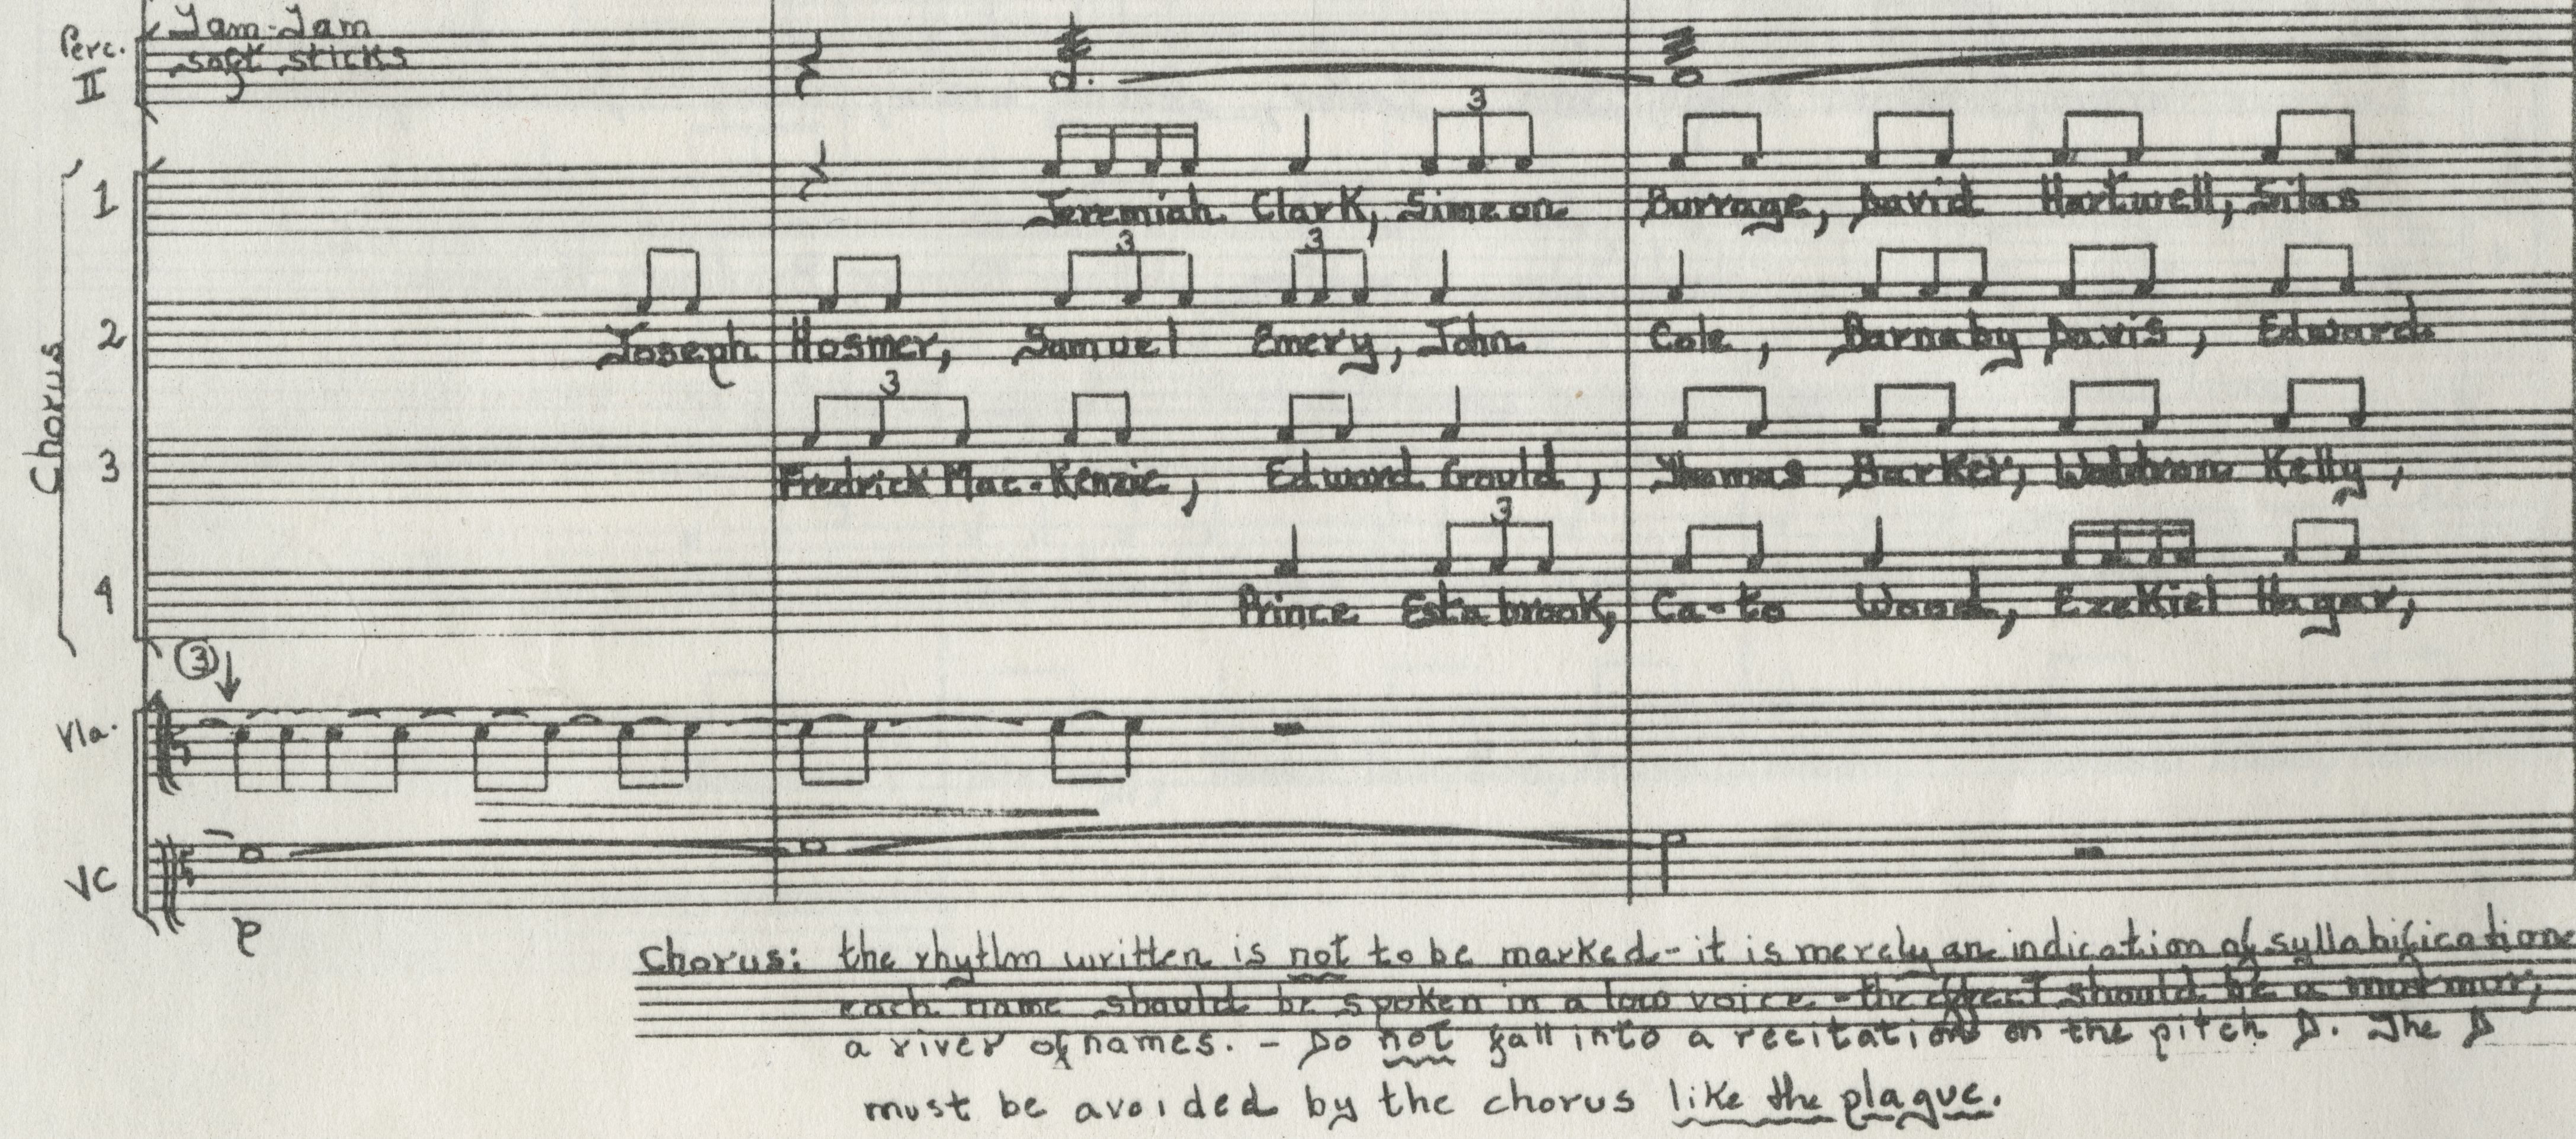 Tam-Tam
Perc. soft sticks
II
3
1
Jeremiah Clark, Simeon Burrage, David Hartwell, Silas
3 3
Chorus
2
Joseph Hosmer, Samuel Emery, John Cole, Barnaby Davis, Edward
3
3
Fredrick Mac-Kenzie, Edward Gould, Thomas Barker, Kelly,
3
4
Prince Esta brook, Ca-to Wood, Ezekiel Hagar,
3
Vla.
VC
p
Chorus: the rhythm written is not to be marked - it is merely an indication of syllabification
each name should be spoken in a low voice - the effect should be a murmur,
a river of names. - Do not fall into a recitation on the pitch D. The D
must be avoided by the chorus like the plague.